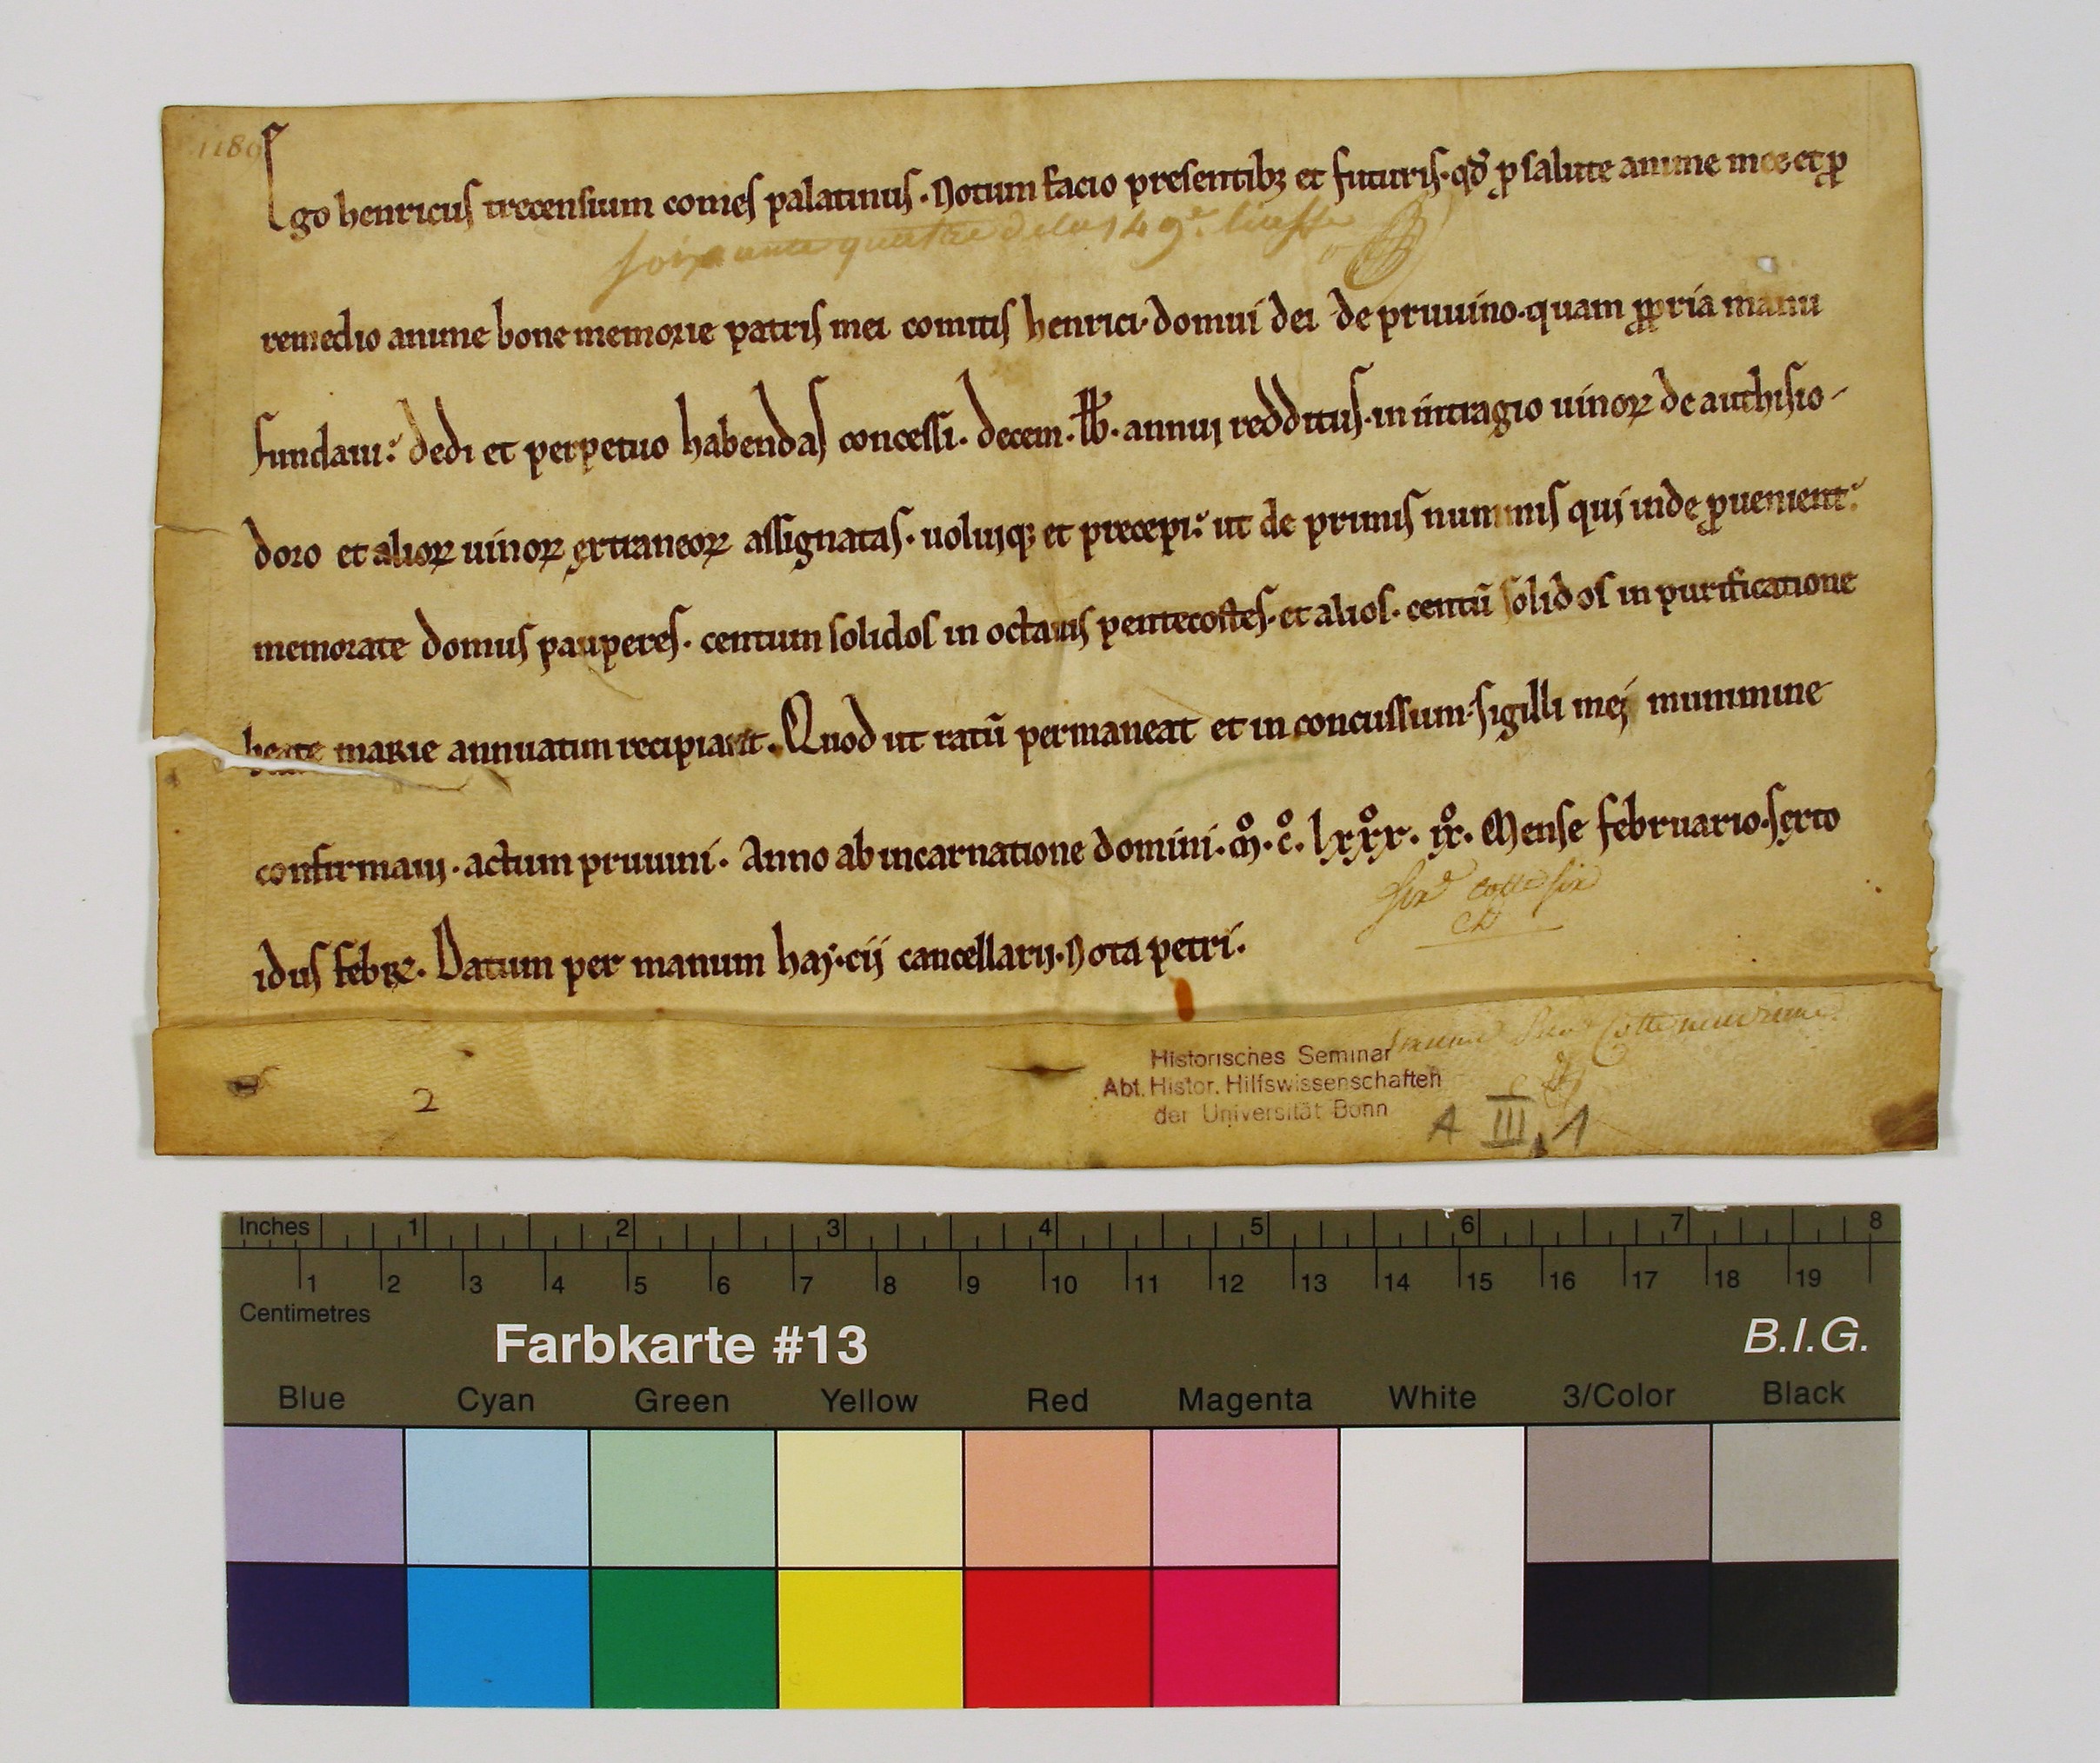 1189
Ego henricus trecensium comes palatinus. Notum facio presentibꝫ et futuris. qđ ꝑ salute anime mee et ꝓ
soixante quatre de la 149e. liasse
remedio anime bone memorie patris mei comitis henrici. domui dei de pruuino. quam ꝓpria manu
fundaui: dedi et perpetuo habendas concessi. decem. łb. annuj redditus. in intragio uinoꝝ de authisio-
doro et alioꝝ uinoꝝ extraneoꝝ assignatas. uoluiqꝫ et precepi: ut de primis nummis quj inde ꝓuenient:
memorate domus pauperes. centum solidos in octauis pentecostes. et alios. centū solidos in purificatione
beate marie annuatim recipiant. Quod ut ratū permaneat et in concussum. sigilli mej munimine
confirmauj. actum pruuini. Anno ab incarnatione domini. m̊. c̊. lxxx̊x. ix̊. Mense februario. serto
cotte six
idus febrꝝ. Datum per manum haj.cij cancellarij. Nota petri.
Cotte neuvieme
2
Historisches Seminar
Abt. Histor. Hilfswissenschaften
der Universität Bonn
A III, 1
Inches 1 2 3 4 5 6 7 8
1 2 3 4 5 6 7 8 9 10 11 12 13 14 15 16 17 18 19
Centimetres
Farbkarte #13 B.I.G.
Blue Cyan Green Yellow Red Magenta White 3/Color Black